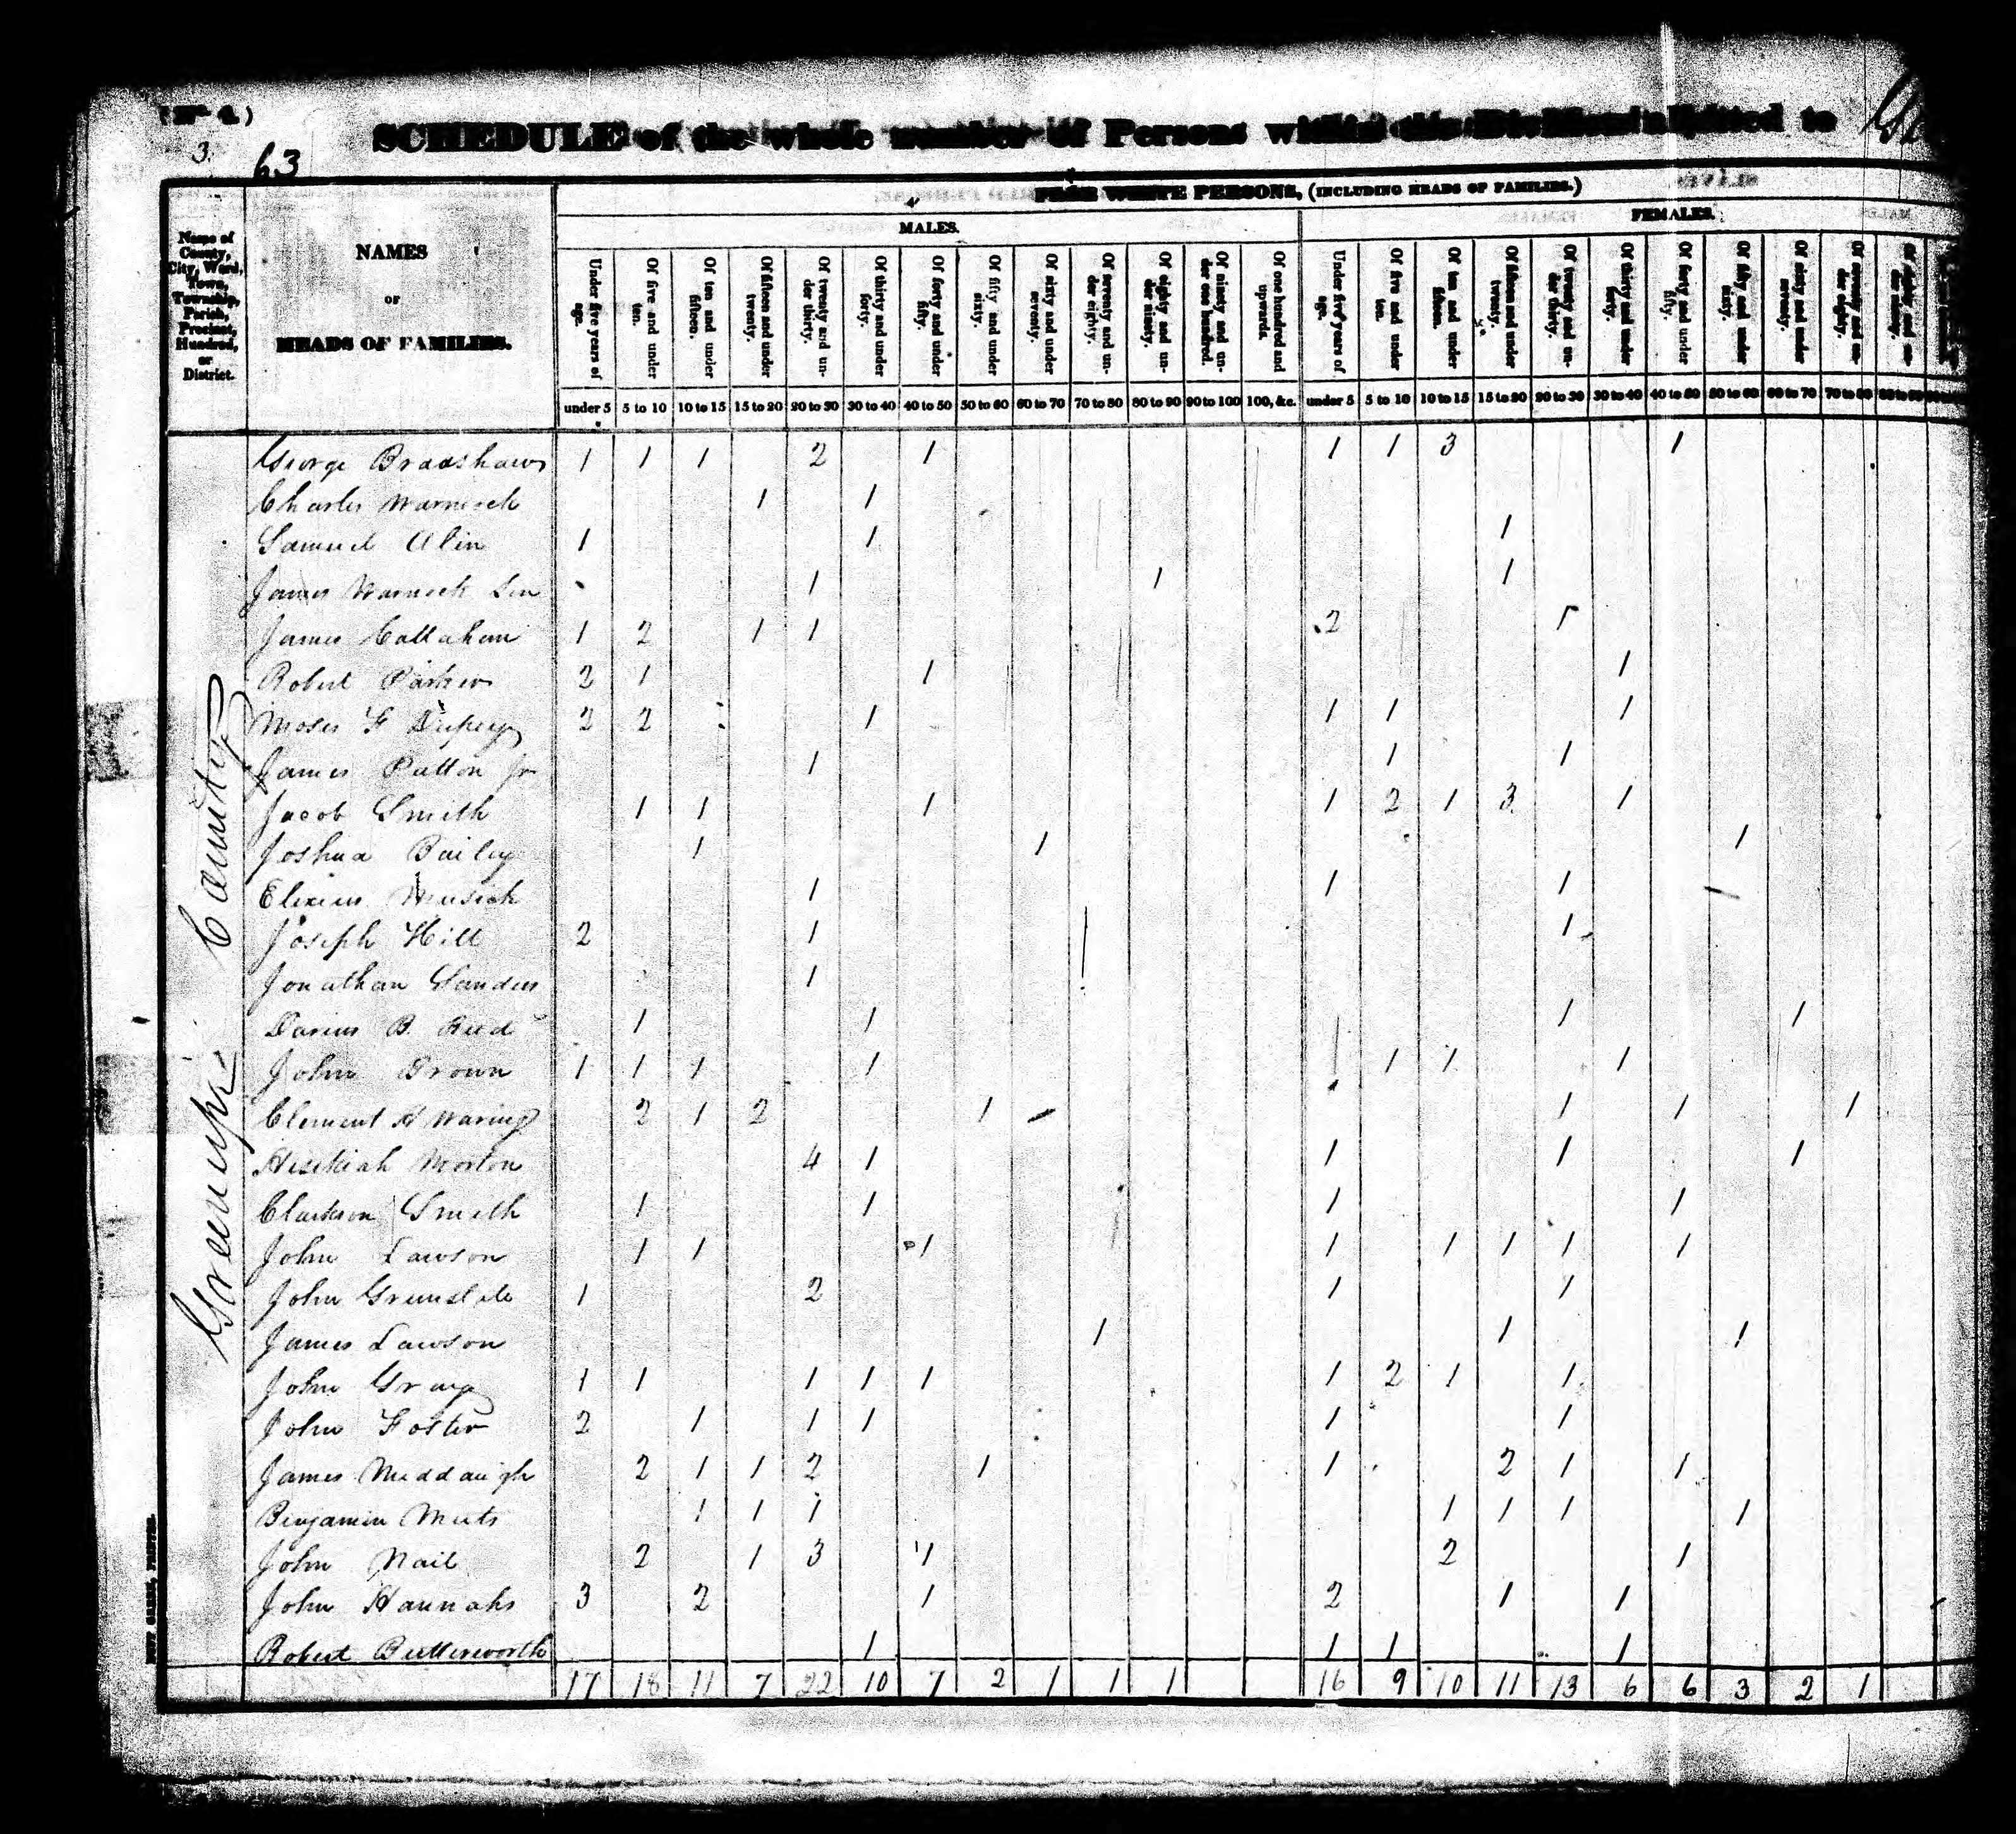 (No. 4.)
3.
63
SCHEDULE of the whole number of Persons within the Division allotted to
FREE WHITE PERSONS, (INCLUDING HEADS OF FAMILIES.)
MALES.
FEMALES.
Name of County, City, Ward, Town, Township, Parish, Precinct, Hundred, or District.
NAMES
OF
HEADS OF FAMILIES.
Under five years of age.
Of five and under ten.
Of ten and under fifteen.
Of fifteen and under twenty.
Of twenty and under thirty.
Of thirty and under forty.
Of forty and under fifty.
Of fifty and under sixty.
Of sixty and under seventy.
Of seventy and under eighty.
Of eighty and under ninety.
Of ninety and under one hundred.
Of one hundred and upwards.
Under five years of age.
Of five and under ten.
Of ten and under fifteen.
Of fifteen and under twenty.
Of twenty and under thirty.
Of thirty and under forty.
Of forty and under fifty.
Of fifty and under sixty.
Of sixty and under seventy.
Of seventy and under eighty.
Of eighty and under ninety.
under 5 5 to 10 10 to 15 15 to 20 20 to 30 30 to 40 40 to 50 50 to 60 60 to 70 70 to 80 80 to 90 90 to 100 100, &c. under 5 5 to 10 10 to 15 15 to 20 20 to 30 30 to 40 40 to 50 50 to 60 60 to 70 70 to 80 80 to 90
Greenup County
George Bradshaw 1 1 1 2 1 1 1 3 1
Charles Warnock 1 1
Samuel Alin 1 1 1
James Warnock Sen 1 1 1
James Callahan 1 2 1 1 2 1
Robert Parker 2 1 1 1
Moses F Dupey 2 2 1 1 1 1
James Patton Jr 1 1 1
Jacob Smith 1 1 1 1 2 1 3 1
Joshua Bailey 1 1 1
Musick 1 1 1
Joseph Hill 2 1 1
Jonathan Sanders 1
Darius B. Reed 1 1 1 1
John Brown 1 1 1 1 1 1 1
Clement H Waring 2 1 2 1 1 1 1
Hezekiah Morton 4 1 1 1 1
Clarkson Smith 1 1 1 1
John Lawson 1 1 1 1 1 1 1 1
John 1 2 1 1
James Lawson 1 1 1
John Gray 1 1 1 1 1 1 2 1 1
John Foster 2 1 1 1 1 1
James Meddaugh 2 1 1 2 1 1 2 1 1
Benjamin Meets 1 1 1 1 1 1 1
John Nail 2 1 3 1 2 1
John Hannahs 3 2 1 2 1 1
Robert Butterworth 1 1 1 1
17 18 11 7 22 10 7 2 1 1 1 16 9 10 11 13 6 6 3 2 1